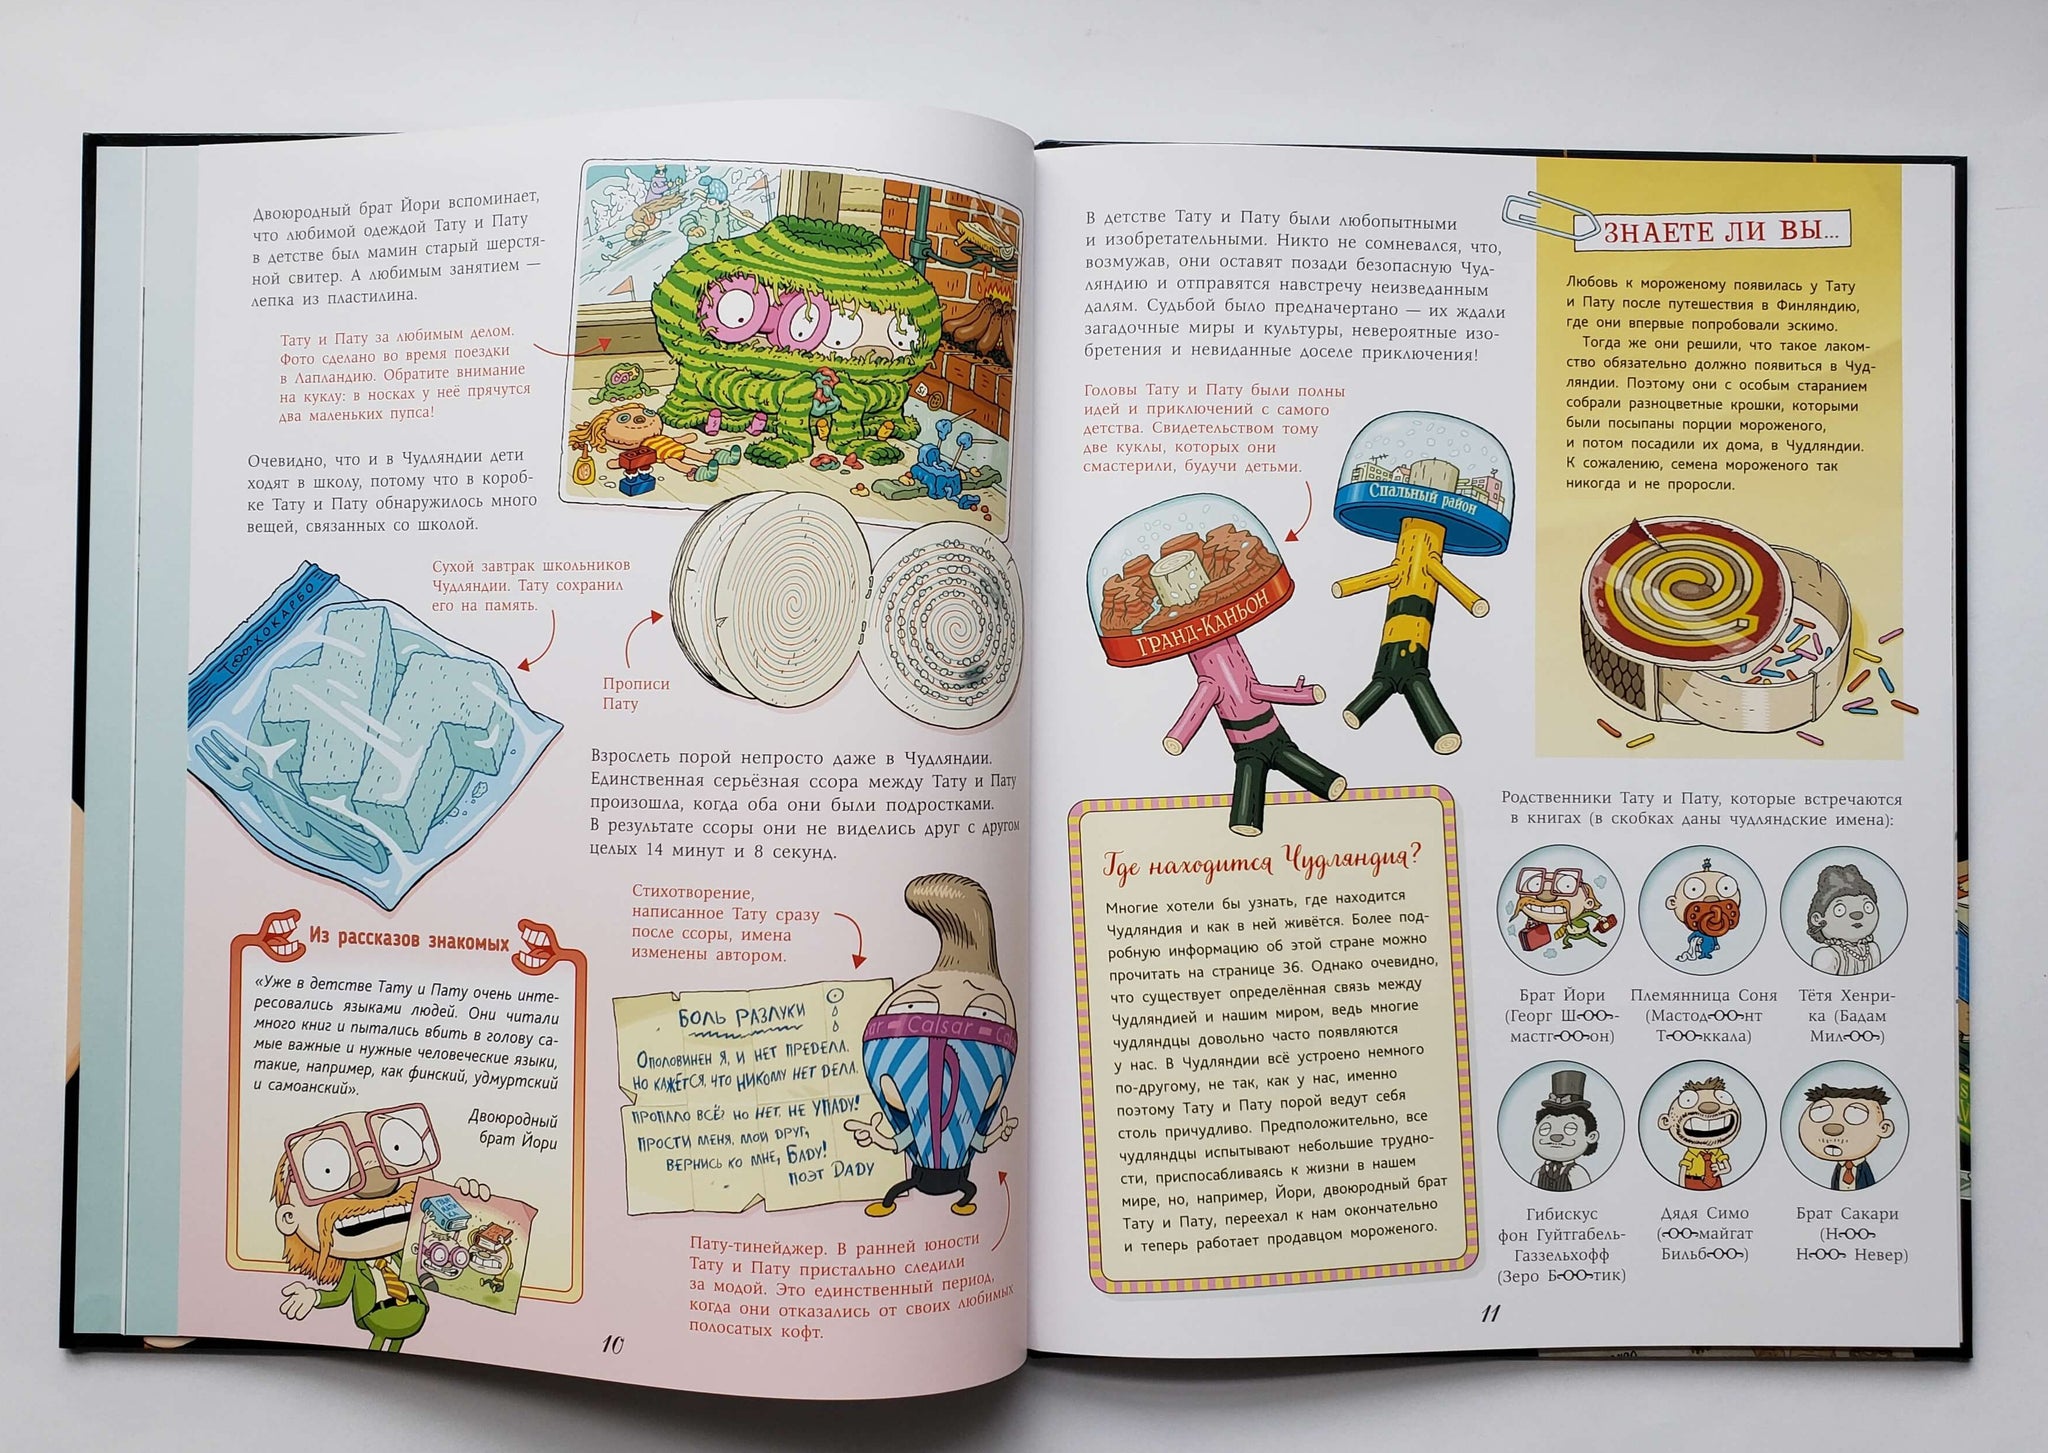 Двоюродный брат Йори вспоминает,
что любимой одеждой Тату и Пату
в детстве был мамин старый шерстя-
ной свитер. А любимым занятием —
лепка из пластилина.
Тату и Пату за любимым делом.
Фото сделано во время поездки
в Лапландию. Обратите внимание
на куклу: в носках у неё прячутся
два маленьких пупса!
Очевидно, что и в Чудляндии дети
ходят в школу, потому что в короб-
ке Тату и Пату обнаружилось много
вещей, связанных со школой.
Сухой завтрак школьников
Чудляндии. Тату сохранил
его на память.
Прописи
Пату
Взрослеть порой непросто даже в Чудляндии.
Единственная серьёзная ссора между Тату и Пату
произошла, когда оба они были подростками.
В результате ссоры они не виделись друг с другом
целых 14 минут и 8 секунд.
Стихотворение,
написанное Тату сразу
после ссоры, имена
изменены автором.
БОЛЬ РАЗЛУКИ
ОПОЛОВИНЕН Я, И НЕТ ПРЕДЕЛА.
НО КАЖЕТСЯ, ЧТО НИКОМУ НЕТ ДЕЛА.
ПРОПАЛО ВСЁ? НО НЕТ, НЕ УПАДУ!
ПРОСТИ МЕНЯ, МОЙ ДРУГ,
ВЕРНИСЬ КО МНЕ, БАДУ!
ПОЭТ DАДУ
Calsar
Из рассказов знакомых
«Уже в детстве Тату и Пату очень инте-
ресовались языками людей. Они читали
много книг и пытались вбить в голову са-
мые важные и нужные человеческие языки,
такие, например, как финский, удмуртский
и самоанский».
Двоюродный
брат Йори
Пату-тинейджер. В ранней юности
Тату и Пату пристально следили
за модой. Это единственный период,
когда они отказались от своих любимых
полосатых кофт.
10
В детстве Тату и Пату были любопытными
и изобретательными. Никто не сомневался, что,
возмужав, они оставят позади безопасную Чуд-
ляндию и отправятся навстречу неизведанным
далям. Судьбой было предначертано — их ждали
загадочные миры и культуры, невероятные изо-
бретения и невиданные доселе приключения!
Головы Тату и Пату были полны
идей и приключений с самого
детства. Свидетельством тому
две куклы, которых они
смастерили, будучи детьми.
Спальный район
ГРАНД-КАНЬОН
Где находится Чудляндия?
Многие хотели бы узнать, где находится
Чудляндия и как в ней живётся. Более под-
робную информацию об этой стране можно
прочитать на странице 36. Однако очевидно,
что существует определённая связь между
Чудляндией и нашим миром, ведь многие
чудляндцы довольно часто появляются
у нас. В Чудляндии всё устроено немного
по-другому, не так, как у нас, именно
поэтому Тату и Пату порой ведут себя
столь причудливо. Предположительно, все
чудляндцы испытывают небольшие трудно-
сти, приспосабливаясь к жизни в нашем
мире, но, например, Йори, двоюродный брат
Тату и Пату, переехал к нам окончательно
и теперь работает продавцом мороженого.
ЗНАЕТЕ ЛИ ВЫ...
Любовь к мороженому появилась у Тату
и Пату после путешествия в Финляндию,
где они впервые попробовали эскимо.
Тогда же они решили, что такое лаком-
ство обязательно должно появиться в Чуд-
ляндии. Поэтому они с особым старанием
собрали разноцветные крошки, которыми
были посыпаны порции мороженого,
и потом посадили их дома, в Чудляндии.
К сожалению, семена мороженого так
никогда и не проросли.
Родственники Тату и Пату, которые встречаются
в книгах (в скобках даны чудляндские имена):
Брат Йори
(Георг Ш-OO-
мастг-OO-он)
Племянница Соня
(Мастод-OO-нт
Т-OO-ккала)
Тётя Хенри-
ка (Бадам
Мил-OO-)
Гибискус
фон Гуйтгабель-
Газзельхофф
(Зеро Б-OO-тик)
Дядя Симо
(-OO-майгат
Бильб-OO-)
Брат Сакари
(Н-OO-
Н-OO- Невер)
11